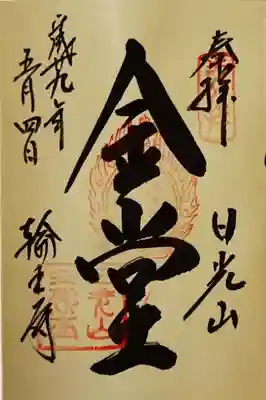 奉拝
日光山
金堂
平成廿九年
五月四日
輪王寺